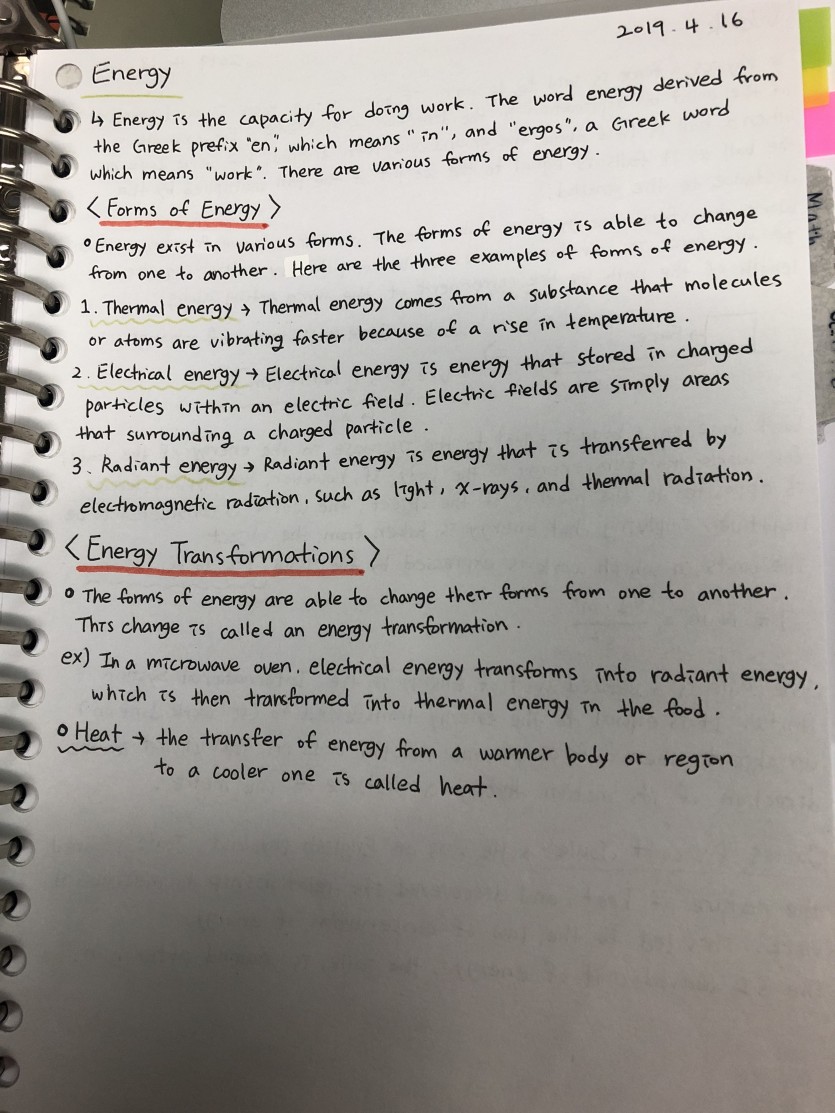 2019.4.16
Energy
↳ Energy is the capacity for doing work. The word energy derived from
the Greek prefix "en", which means "in", and "ergos", a Greek word
which means "work". There are various forms of energy.
<Forms of Energy>
° Energy exist in various forms. The forms of energy is able to change
from one to another. Here are the three examples of forms of energy.
1. Thermal energy → Thermal energy comes from a substance that molecules
or atoms are vibrating faster because of a rise in temperature.
2. Electrical energy → Electrical energy is energy that stored in charged
particles within an electric field. Electric fields are simply areas
that surrounding a charged particle.
3. Radiant energy → Radiant energy is energy that is transferred by
electromagnetic radiation, such as light, x-rays, and thermal radiation.
<Energy Transformations>
° The forms of energy are able to change their forms from one to another.
This change is called an energy transformation.
ex) In a microwave oven, electrical energy transforms into radiant energy,
which is then transformed into thermal energy in the food.
° Heat → the transfer of energy from a warmer body or region
to a cooler one is called heat.
Math